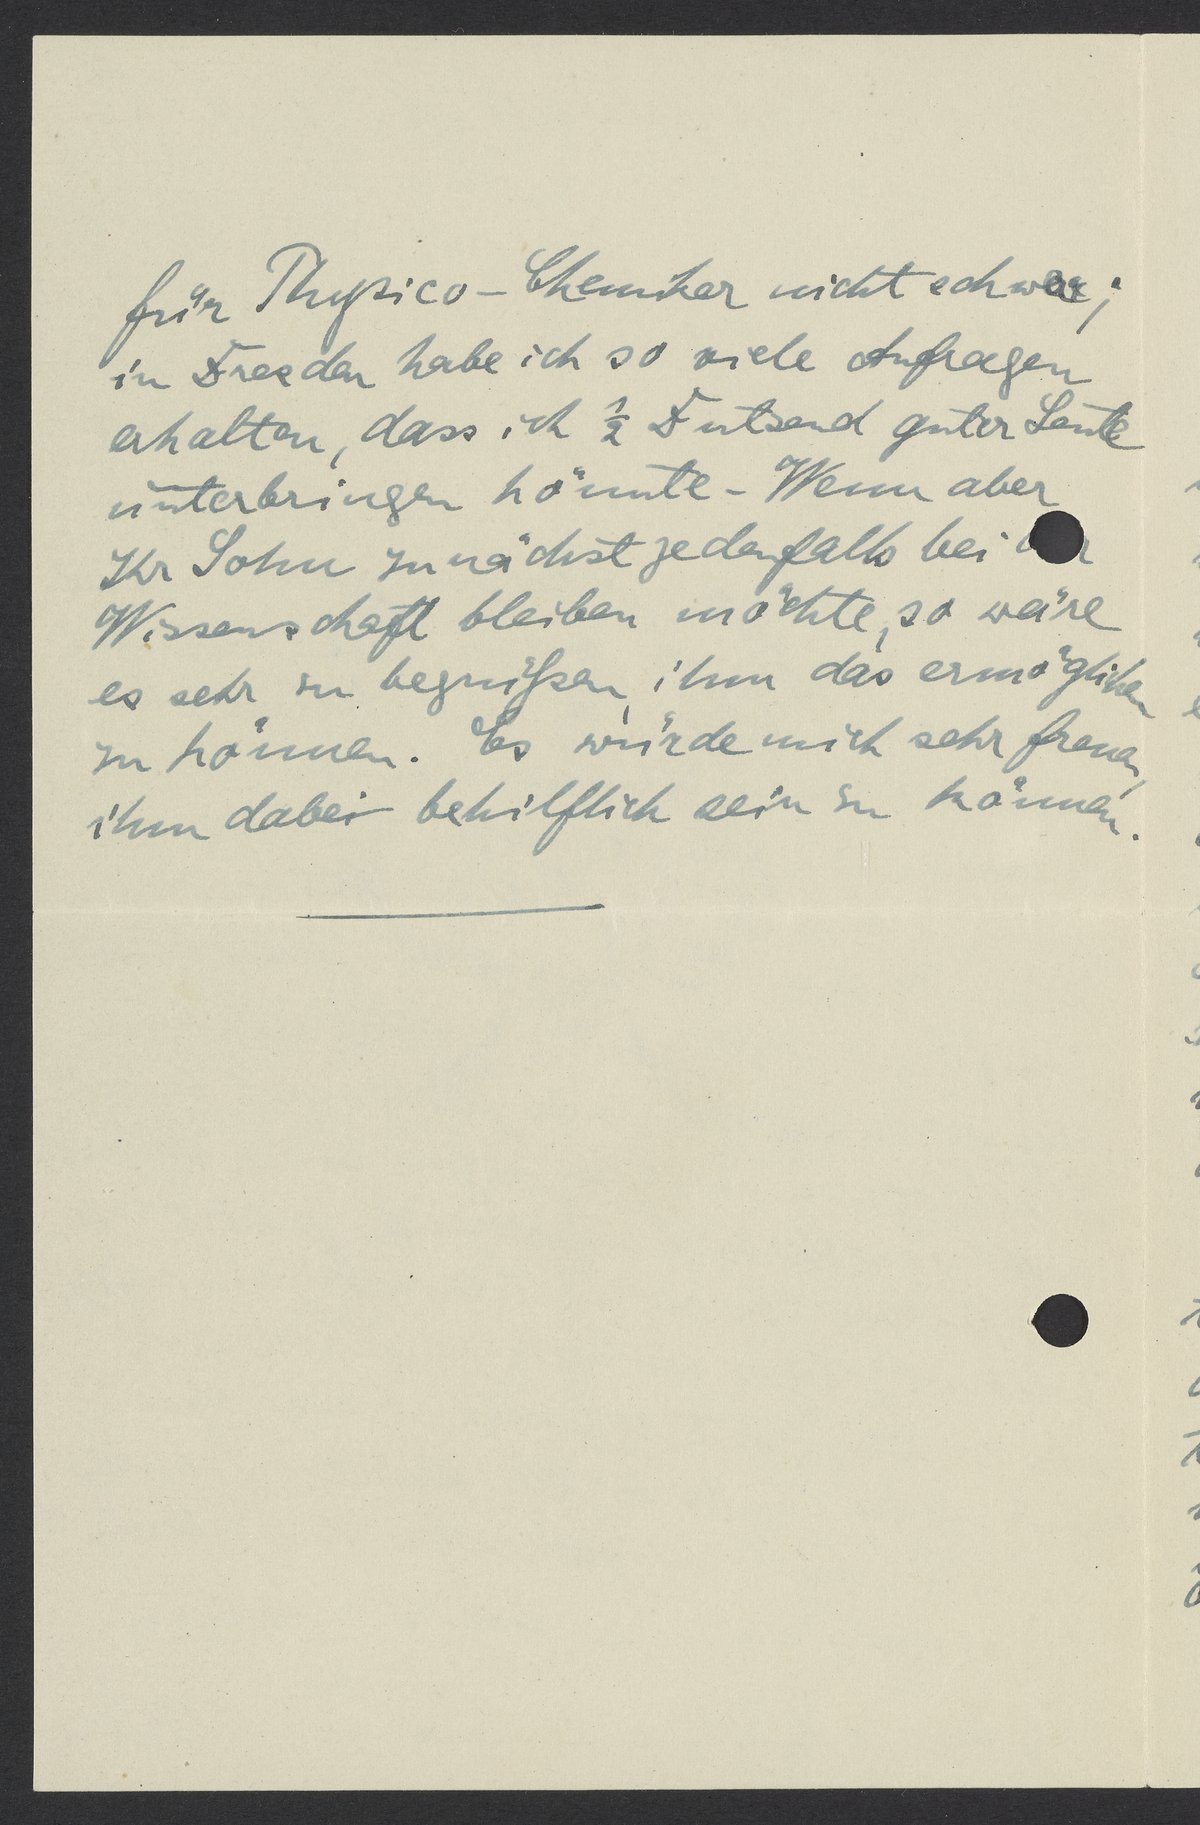 für Physico-Chemiker nicht schwer;
in Dresden habe ich so viele Anfragen
erhalten, dass ich ½ Dutzend guter Leute
unterbringen könnte - Wenn aber
Ihr Sohn zunächst jedenfalls bei der
Wissenschaft bleiben möchte, so wäre
es sehr zu begrüßen, ihm das ermöglichen
zu können. Es würde mich sehr freuen,
ihm dabei behilflich sein zu können.